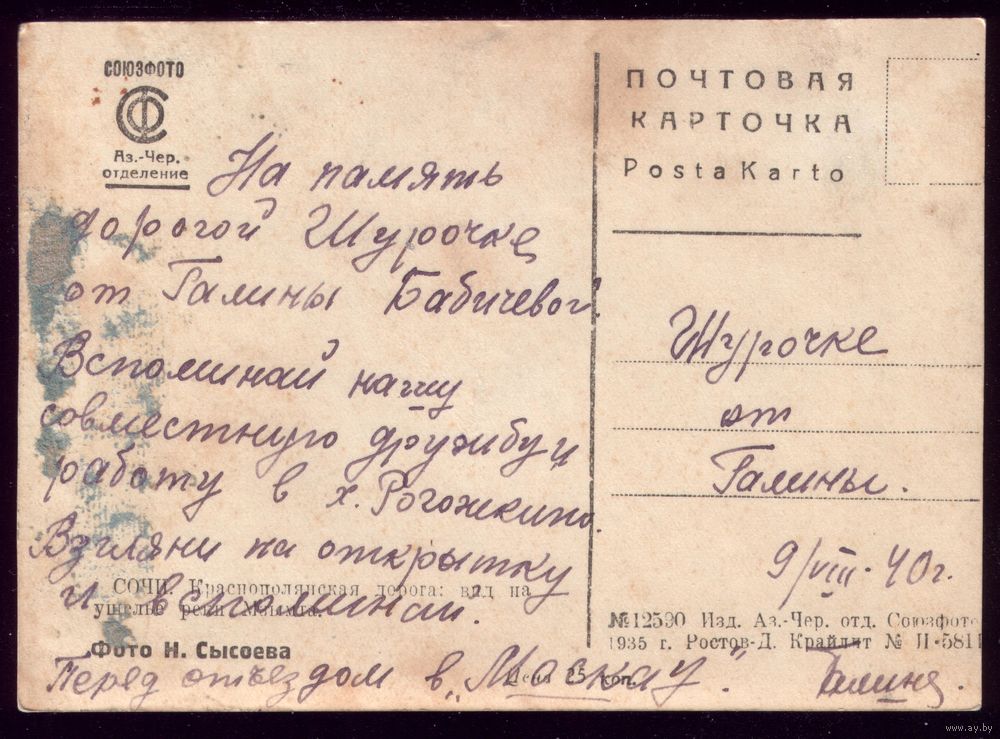 СОЮЗФОТО
СФ
Аз.-Чер.
отделение
На память
дорогой Шурочке
от Галины Бабичевой.
Вспоминай нашу
совместную дружбу и
работу в х. Рогожкино.
Взгляни на открытку
и вспоминай.
СОЧИ. Краснополянская дорога: вид на
ущелье реки Мзымта.
Фото Н. Сысоева
Перед отъездом в „Москву".
Цена 25 коп.
ПОЧТОВАЯ
КАРТОЧКА
Posta Karto
Шурочке
от
Галины.
9/VIII-40г.
№ 12590 Изд. Аз.-Чер. отд. Союзфото
1935 г. Ростов-Д. Крайлит № П-5811
Галина.
www.ay.by